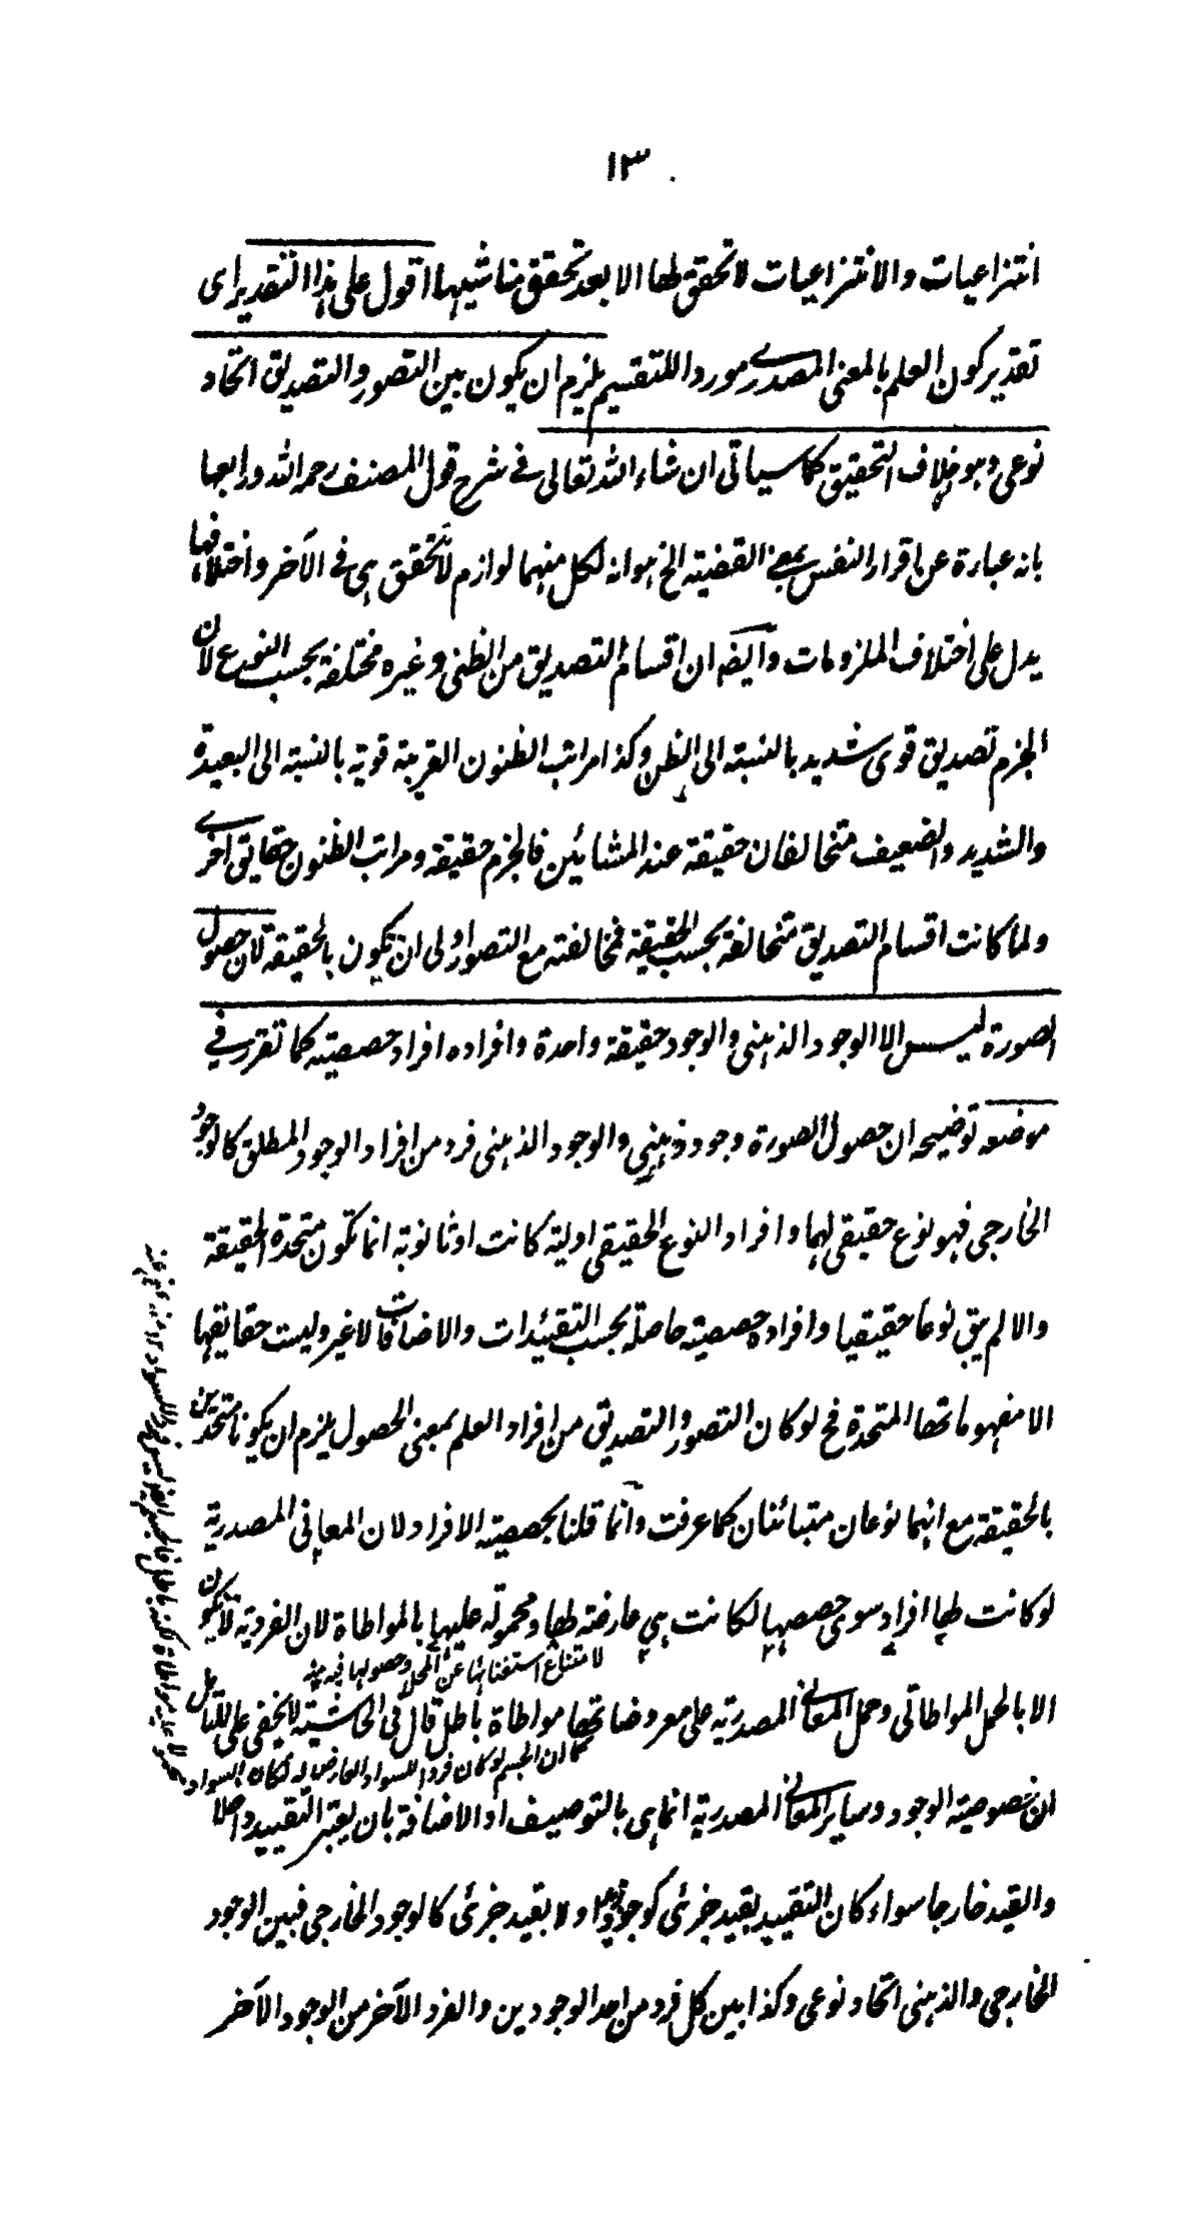 ١٣
انتزاعيات والانتزاعيات لا تحقق لها الا بعد تحقق مناشيها اقول على هذا التقدير اى
تقدير كون العلم بالمعنى المصدرى موردا للتقسيم يلزم ان يكون بين التصور والتصديق اتحاد
نوعى وهو خلاف التحقيق كما سياتى ان شاء الله تعالى فى شرح قول المصنف رحمه الله ورابعها
بانه عبارة عن اقرار النفس بمعنى القضية الخ هو انه لكل منهما لوازم لا تحقق هى فى الآخر واختلافها
يدل على اختلاف الملزومات وايضه ان اقسام التصديق من الظنى وغيره مختلفة بحسب النوع لان
الجزم تصديق قوى شديد بالنسبة الى الظن وكذا مراتب الظنون القريبة قوية بالنسبة الى البعيدة
والشديد والضعيف متخالفان حقيقة عند المشائين فالجزم حقيقة ومراتب الظنون حقايق اخرى
ولما كانت اقسام التصديق متخالفة بحسب الحقيقة فمخالفته مع التصور اولى ان يكون بالحقيقة لان حصول
الصورة ليس الا الوجود الذهنى والوجود حقيقة واحدة وافراده افراد حصصية كما تقرر فى
موضعه توضيحه ان حصول الصورة وجود ذهنى والوجود الذهنى فرد من افراد الوجود المطلق كالوجود
الخارجى فهو نوع حقيقى لهما وافراد النوع الحقيقى اولية كانت او ثانوية انما تكون متحدة الحقيقة
والا لم يبق نوعا حقيقيا وافراده حصصية حاصلة بحسب التقييدات والاضافات لا غير وليست حقايقها
الا مفهوماتها المتحدة فح لو كان التصور والتصديق من افراد العلم بمعنى الحصول يلزم ان يكونا متحدين
بالحقيقة مع انهما نوعان متبائنان كما عرفت وانما قلنا بحصصية الافراد لان المعانى المصدرية
لو كانت لها افراد سوى حصصها لكانت هى عارضة لها ومحمولة عليها بالمواطاة لان الفردية لا تكون
لامتناع استغنائها عن المحل وحصولها فيه منه
الا بالحمل المواطاتى وحمل المعانى المصدرية على معروضاتها مواطاة باطل قال فى الحاشية لا يخفى على المتامل
كما ان الجسم لو كان فردا للسواد العارض له لكان السواد
ان خصوصية الوجود وساير المعانى المصدرية انما هى بالتوصيف او الاضافة بان يعتبر التقييد داخلا
والقيد خارجا سواء كان التقييد بقيد جزئى كوجود زيد اولا بقيد جزئى كالوجود الخارجى فبين الوجود
الخارجى والذهنى اتحاد نوعى وكذا بين كل فرد من احد الوجودين والفرد الآخر من الوجود الآخر